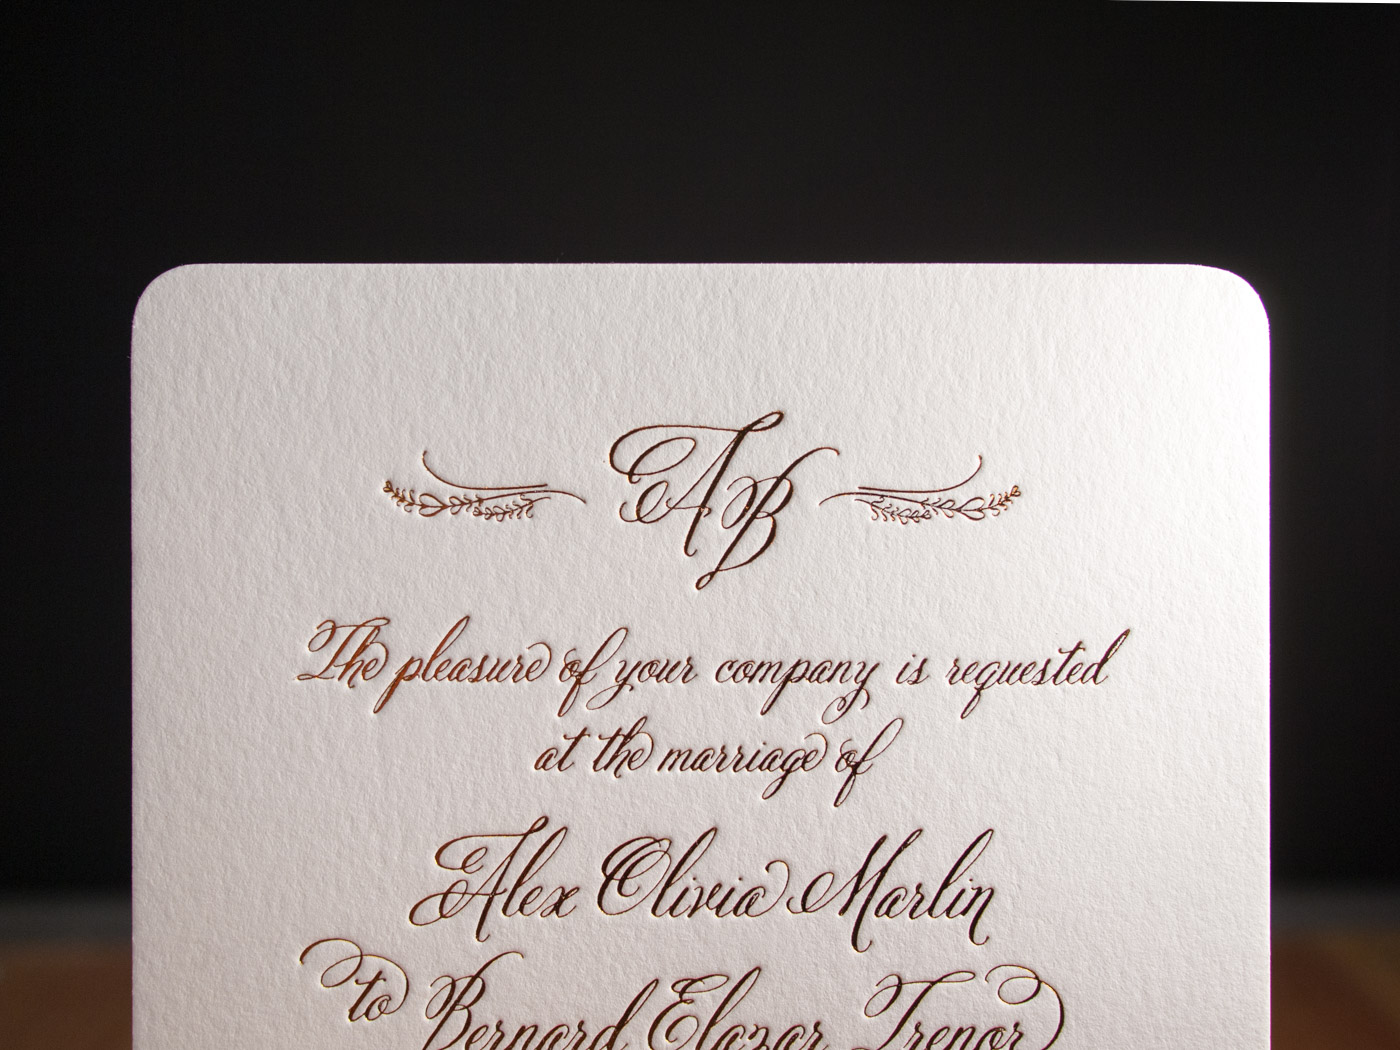 AB
The pleasure of your company is requested
at the marriage of
Alex Olivia Marlin
to Bernard Elazar Trenor